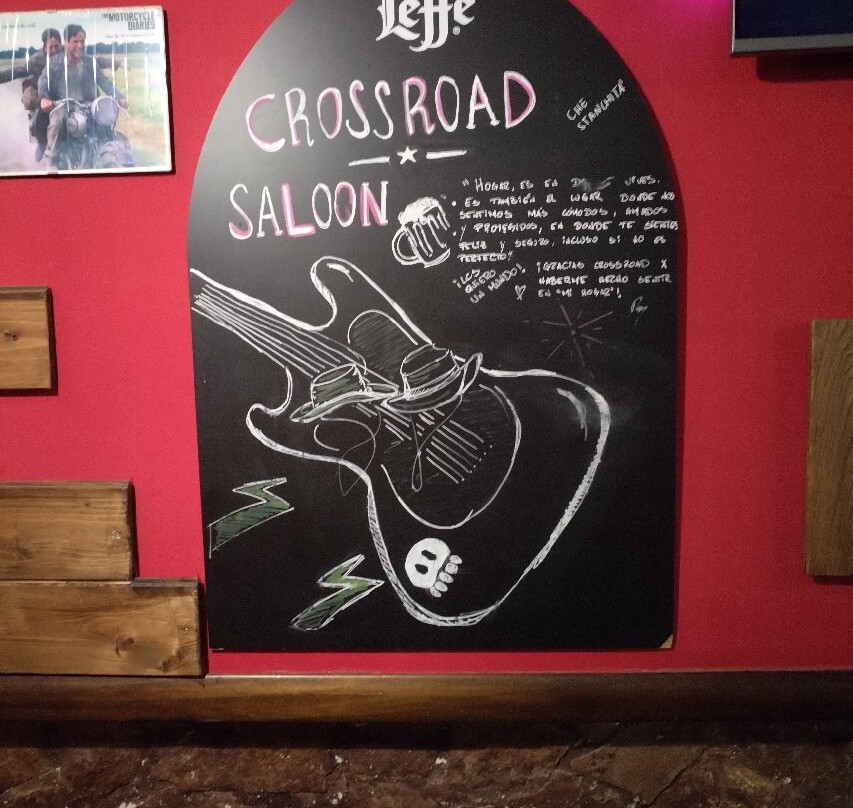 THE MOTORCYCLE
DIARIES
Leffe
CROSSROAD
CHE
STANCHITA
SALOON
"HOGAR, ES EN
ES TAMBIÉN EL LUGAR DONDE NOS
SENTIMOS MÁS CÓMODOS, AMADOS
Y PROTEGIDOS, EN DONDE TE SIENTES
FELIZ Y SEGURO, INCLUSO SI NO ES
PERFECTO!
¡LES
QUIERO
UN MUNDO!
¡GRACIAS CROSSROAD X
HABERME HECHO SENTIR
EN "MI HOGAR"!